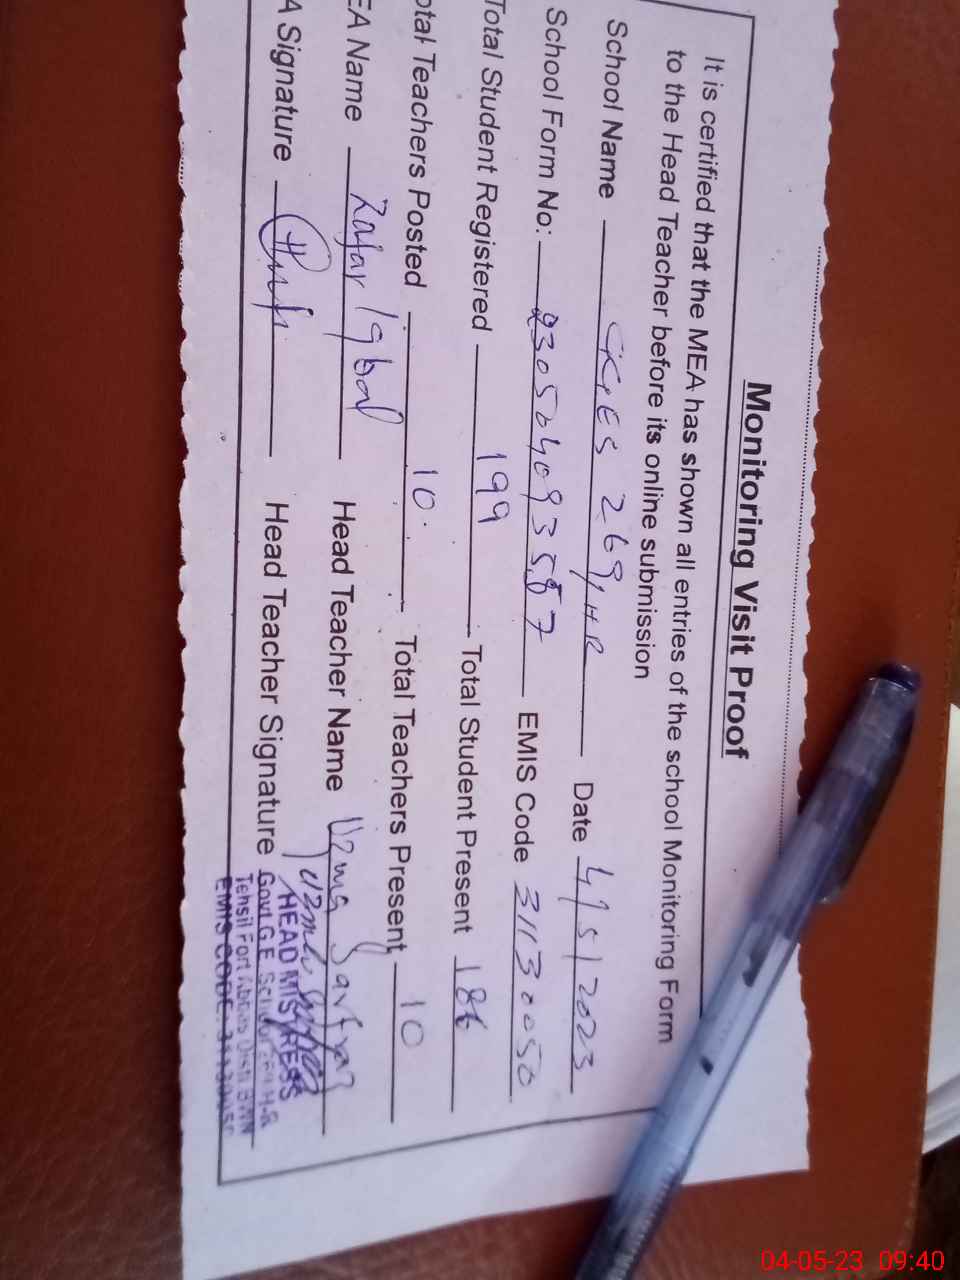 Monitoring Visit Proof
It is certified that the MEA has shown all entries of the school Monitoring Form
to the Head Teacher before its online submission
School Name GGES 269/HR Date 4/5/2023
School Form No: 230504093587 EMIS Code 31130050
Total Student Registered 199 Total Student Present 186
otal Teachers Posted 10. Total Teachers Present 10
EA Name Zafar Iqbal Head Teacher Name Uzma Sarfraz
A Signature Head Teacher Signature
HEAD MISTRESS
Govt.G.E. School 269 H-R
Tehsil Fort Abbas Distt BWN
EMIS CODE. 31130050
04-05-23 09:40